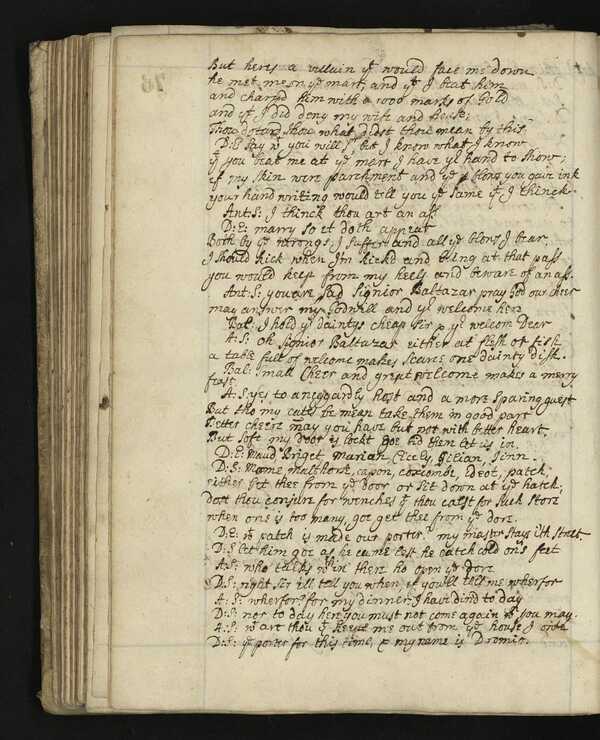 But heres a villain yt would face me down
he met me on ye mart, and yt I beat him
and charg'd him with a 1000 marks of Gold
and yt I did deny my wife and house;
Thou dotard thou what didst thou mean by this
D:E: Say wt you will Sr, but I know what I know
yt you beat me at ye mart I have yr hand to show;
if my skin were parchment and ye blows you gave ink
your hand writing would tell you ye same yt I thinck
Ant:S: I thinck thou art an ass
D:E: marry so it doth appear
Both by ye wrongs I suffer and all ye blows I bear.
I should kick when I'm kickd and being at that pass
you would keep from my heels and beware of an ass.
Ant:S: you are sad Signior Baltazar pray God our cheer
may answer my Godwill and yr welcome here
Bal: I hold yr daintys cheap Sir & yr welcom Dear
A:S: oh Signior Baltazar either at flesh or fish
a table full of welcome makes scarce one dainty dish.
Bal: small Cheer and great welcome makes a merry
feast.
A:S: yes to a niggardly host and a more sparing guest
But tho my cates be mean take them in good part
Better cheere may you have but not with better heart.
But soft my door is lockt goe bid them let us in.
D:E: Maud Briget Marian Cicely, Gilian, Jinn.
D:S: Mome malthorse, capon, coxcombe, Ideot, patch,
either get thee from ye door or sit down at ye hatch;
dost thou conjure for wenches yt thou calst for such store
when one is too many, goe get thee from ye dore.
D:E: wt patch is made our porter, my master stays ith Street.
D:S let him goe as he came lest he catch cold on's feet
A:S: who talks wthin there ho open ye dore
D:S: right Sir ill tell you when, if you'll tell me wherfor
A:S: wherfor? for my dinner I have dind to day
D:S: nor to day here you must not come again wn you may.
A:S: wt art thou yt keeps me out from ye house I owe
D:S: ye porter for this time, & my name is Dromio.